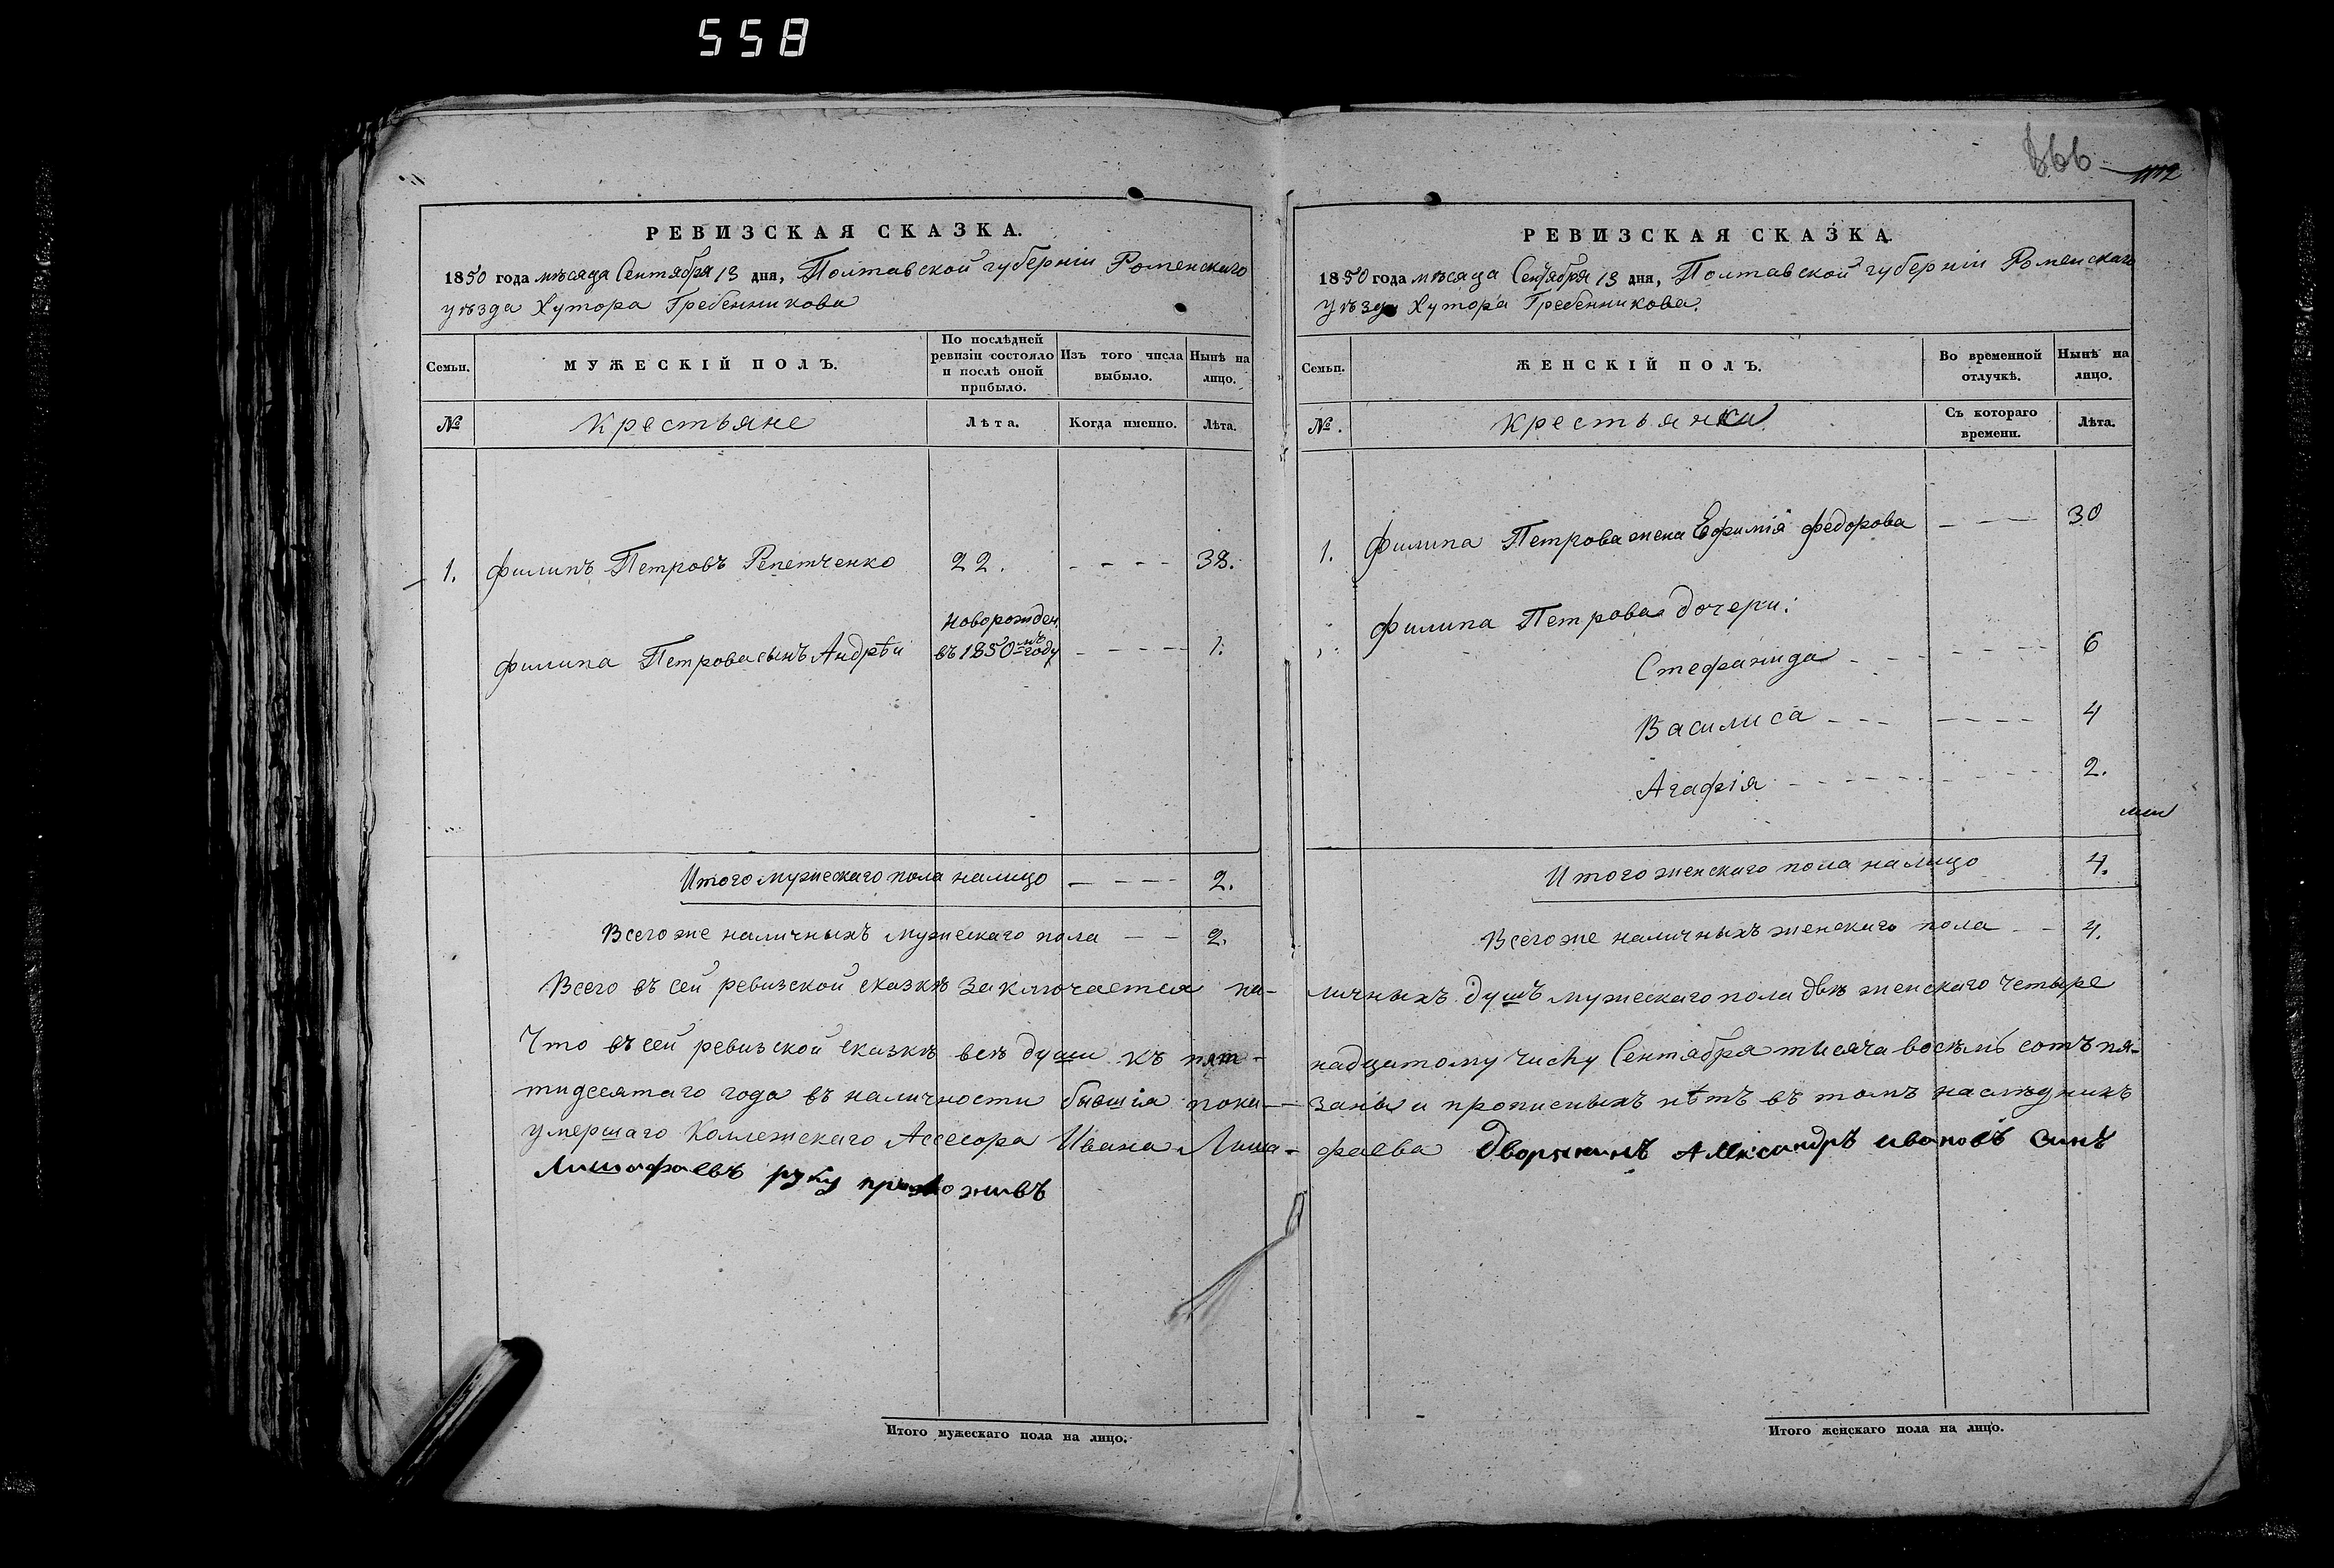 558
866
РЕВИЗСКАЯ СКАЗКА.
1850 года мѣсяца Сентября 13 дня, Полтавской губерніи Роменскаго
уѣзда Хутора Гребенникова
Семьи.
МУЖЕСКІЙ ПОЛЪ.
По послѣдней ревизіи состояло и послѣ оной прибыло.
Изъ того числа выбыло.
Нынѣ на лицо.
№
Крестьяне
Лѣта.
Когда именно.
Лѣта.
1. Филипъ Петровъ Репетченко 22. - - - - 38.
Новорожден.
Филипа Петрова сынъ Андрѣй въ 1850мъ году - - - - 1.
Итого мужескаго пола налицо - - - - 2.
Всего же наличныхъ мужескаго пола - - 2.
РЕВИЗСКАЯ СКАЗКА.
1850 года мѣсяца Сентября 13 дня, Полтавской губерніи Роменскаго
уѣзда Хутора Гребенникова.
Семьи.
ЖЕНСКІЙ ПОЛЪ.
Во временной отлучкѣ.
Нынѣ на лицо.
№.
Крестьянки
Съ котораго времени.
Лѣта.
1. Филипа Петрова жена Ефимія Федорова - - - 30
Филипа Петрова дочери:
Стефанида - - - - - - 6
Василиса - - - - - - - 4
Агафія - - - - - - - - 2.
Итого женскаго пола налицо 4.
Всего же наличныхъ женскаго пола - - 4.
Всего въ сей ревизской сказкѣ заключается на- личныхъ душъ мужескаго пола двѣ женскаго четыре
Что въ сей ревизской сказкѣ всѣ души къ пят- надцатому числу Сентября тысяча восемь сотъ пя-
тидесятаго года въ наличности бывшія пока- заны и прописныхъ нѣтъ въ томъ наслѣдникъ
умершаго Коллежскаго Ассесора Ивана Лиша- фаева дворянинъ Александръ Ивановъ синъ
Лишафаевъ руку приложивъ
Итого мужескаго пола на лицо.
Итого женскаго пола на лицо.